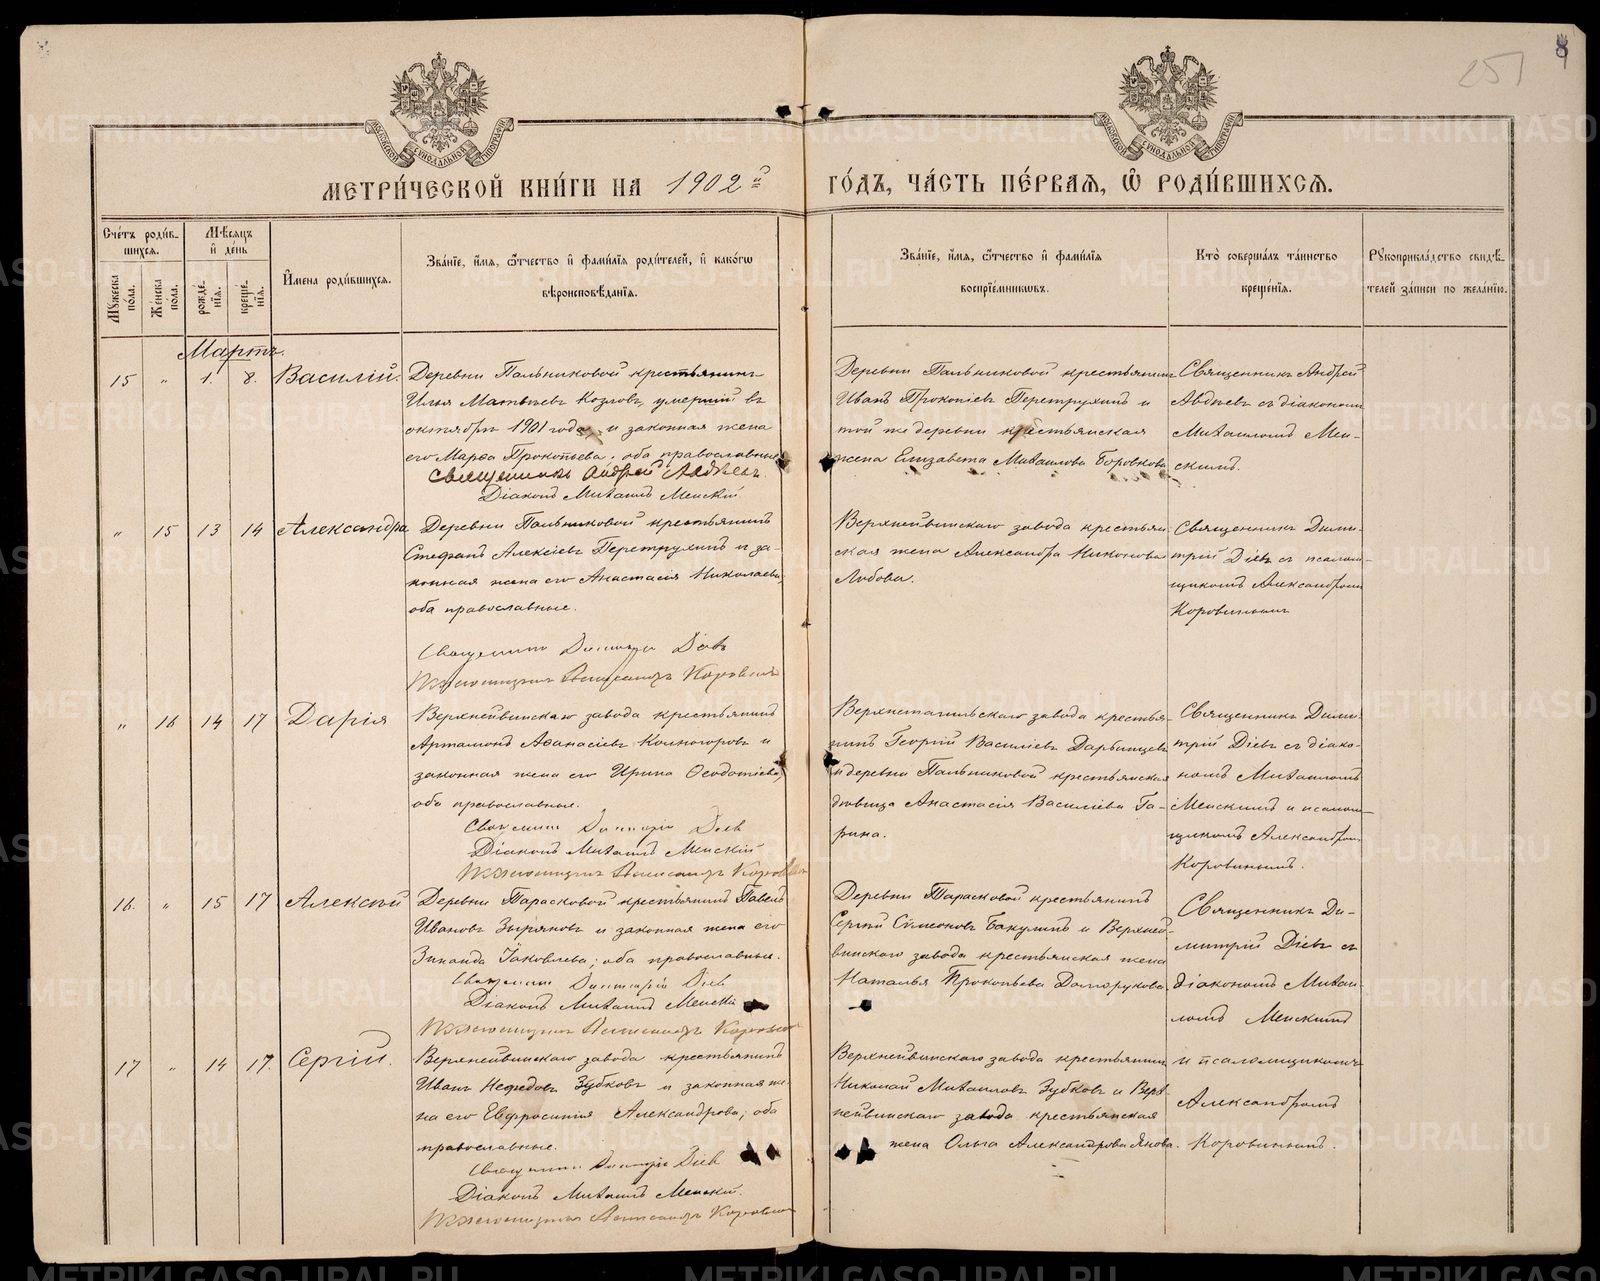 8
251
МОСКОВСКОЙ СѴНОДАЛЬНОЙ ТИПОГРАФІИ
МОСКОВСКОЙ СѴНОДАЛЬНОЙ ТИПОГРАФІИ
МЕТРИ́ЧЕСКОЙ КНИ́ГИ НА 1902й ГО́ДЪ, ЧА́СТЬ ПЕ́РВАѦ, Ѿ РОДИ́ВШИХСѦ.
Сче́тъ роди́в-
шихсѧ.
Мѣ́сѧцъ
и҆ де́нь
Мꙋ́жеска по́ла.
Же́нска по́ла.
рожде́-
нїѧ.
креще́-
нїѧ.
И҆мена̀ роди́вшихсѧ.
Зва́нїе, и҆́мѧ, ѻ҆́тчество и҆ фами́лїѧ роди́телей, и҆ како́гѡ
вѣроисповѣ́данїѧ.
Зва́нїе, и҆́мѧ, ѻ҆́тчество и҆ фами́лїѧ
воспрїе́мникѡвъ.
Кто̀ соверша́лъ та́инство
креще́нїѧ.
Рꙋкоприкла́дство свидѣ́-
телей за́писи по жела́нїю.
Мартъ.
15 „ 1. 8. Василій.
Деревни Пальниковой крестьянинъ
Илья Матвѣевъ Козловъ, умершій въ
октябрѣ 1901 года, и законная жена
его Марѳа Прокопьева, оба православные
Священникъ Андрей Авдѣевъ.
Діаконъ Михаилъ Менскій
Деревни Пальниковой крестьянинъ
Иванъ Прокопіевъ Перетрухинъ и
той же деревни крестьянская
жена Елизавета Михаилова Боровкова
Священникъ Андрей
Авдѣевъ съ діакономъ
Михаиломъ Мен-
скимъ.
„ 15 13 14 Александра
Деревни Пальниковой крестьянинъ
Стефанъ Алексіевъ Перетрухинъ и за-
конная жена его Анастасія Николаева,
оба православные.
Священникъ Димитрій Діевъ
Псаломщикъ Александръ Коровинъ
Верхнейвинскаго завода крестьян-
ская жена Александра Никонова
Лобова.
Священникъ Дими-
трій Діевъ съ псалом-
щикомъ Александромъ
Коровинымъ
„ 16 14 17 Дарія
Верхнейвинскаго завода крестьянинъ
Артамонъ Аѳанасіевъ Колногоровъ и
законная жена его Ирина Ѳеодотіева,
оба православные.
Священникъ Димитрій Діевъ
Діаконъ Михаилъ Менскій
Псаломщикъ Александръ Коровинъ
Верхнетагильскаго завода крестья-
нинъ Георгій Василіевъ Дарбинцевъ
и деревни Пальниковой крестьянская
дѣвица Анастасія Василіева Га-
рина.
Священникъ Дими-
трій Діевъ съ діако-
номъ Михаиломъ
Менскимъ и псалом-
щикомъ Александром
Коровинымъ.
16. „ 15 17 Алексѣй
Деревни Тарасковой крестьянинъ Павелъ
Ивановъ Зыряновъ и законная жена его
Зинаида Іаковлева; оба православные.
Священникъ Димитрій Діевъ
Діаконъ Михаилъ Менскій
Псаломщикъ Александръ Коровинъ
Деревни Тарасковой крестьянинъ
Сергій Сѵмеоновъ Бакулинъ и Верхней-
винскаго завода крестьянская жена
Наталья Прокопьева Долгорукова
Священникъ Ди-
митрій Діевъ съ
діакономъ Михаи-
ломъ Менскимъ
17 „ 14 17. Сергій.
Верхнейвинскаго завода крестьянинъ
Иванъ Нефедовъ Зубковъ и законная же-
на его Евфросинія Александрова; оба
православные.
Священникъ Димитрій Діевъ
Діаконъ Михаилъ Менскій.
Псаломщикъ Александръ Коровинъ
Верхнейвинскаго завода крестьянинъ
Николай Михаиловъ Зубковъ и Верх-
нейвинскаго завода крестьянская
жена Ольга Александрова Янова.
и псаломщикомъ
Александромъ
Коровинымъ.
METRIKI.GASO-URAL.RU